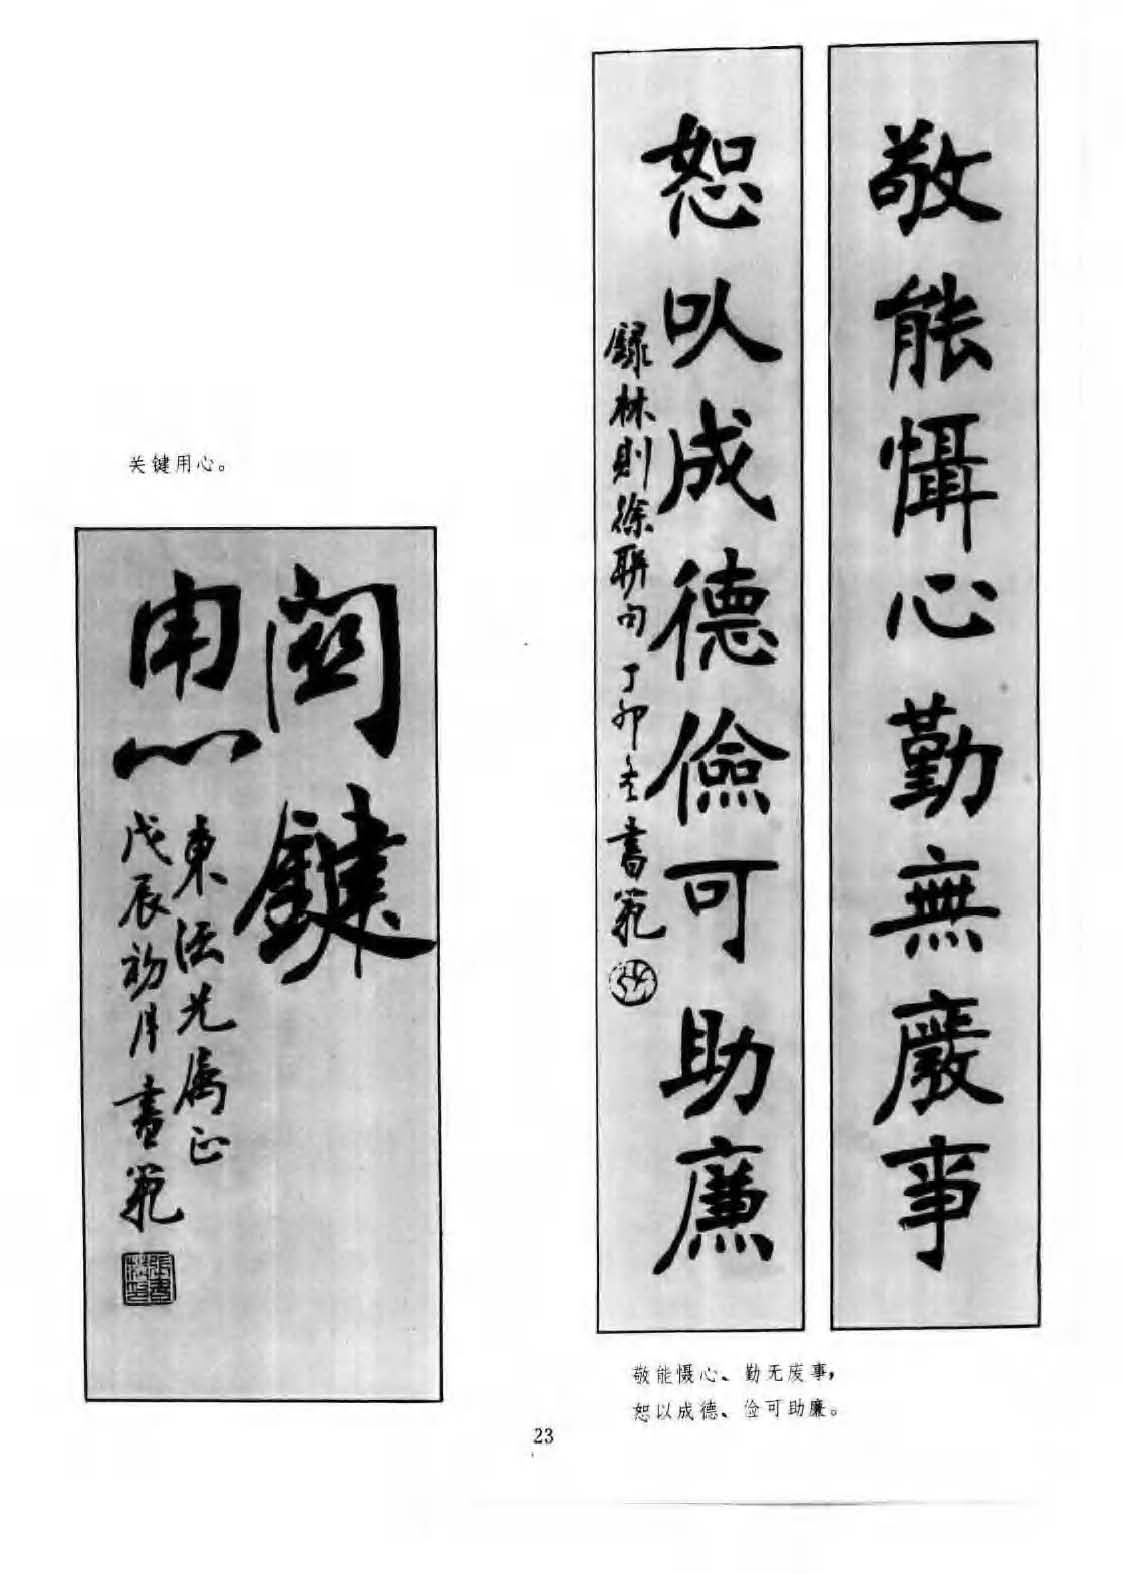 敬能慑心勤無廢事
恕以成德儉可助廉
録林則徐聯句丁卯冬書範
关键用心。
関鍵
用心
東法兄属正
戊辰初月書範
敬能慑心、勤无废事，
恕以成德、俭可助廉。
23